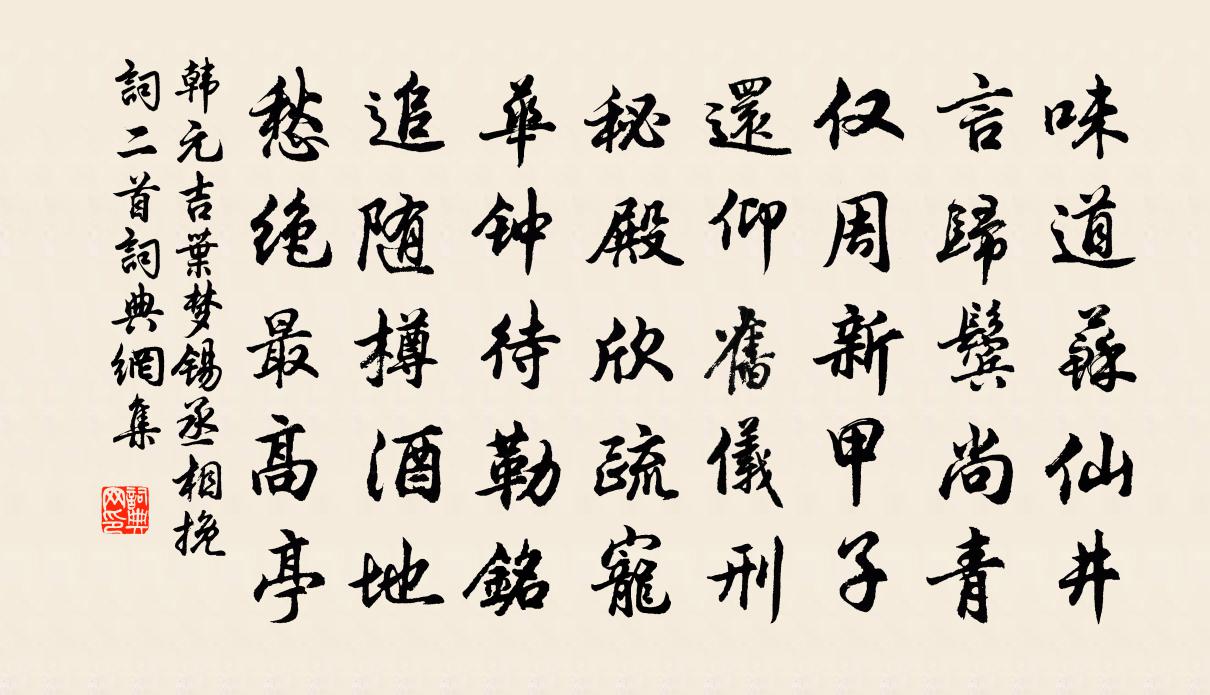 味道蘇仙井
言歸鬓尚青
仅周新甲子
還仰舊儀刑
秘殿欣疏寵
華钟待勒銘
追随樽酒地
愁绝最高亭
韩元吉葉梦锡丞相挽
詞二首詞典網集
詞典网印